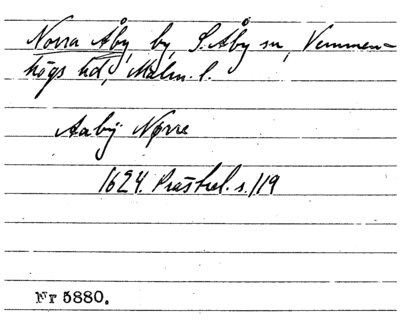 Norra Åby, by, S. Åby sn, Vemmen-
högs hd, Malm. l.
Aabÿ Nørre
1624. Præstrel. s. 119
Nr 5880.